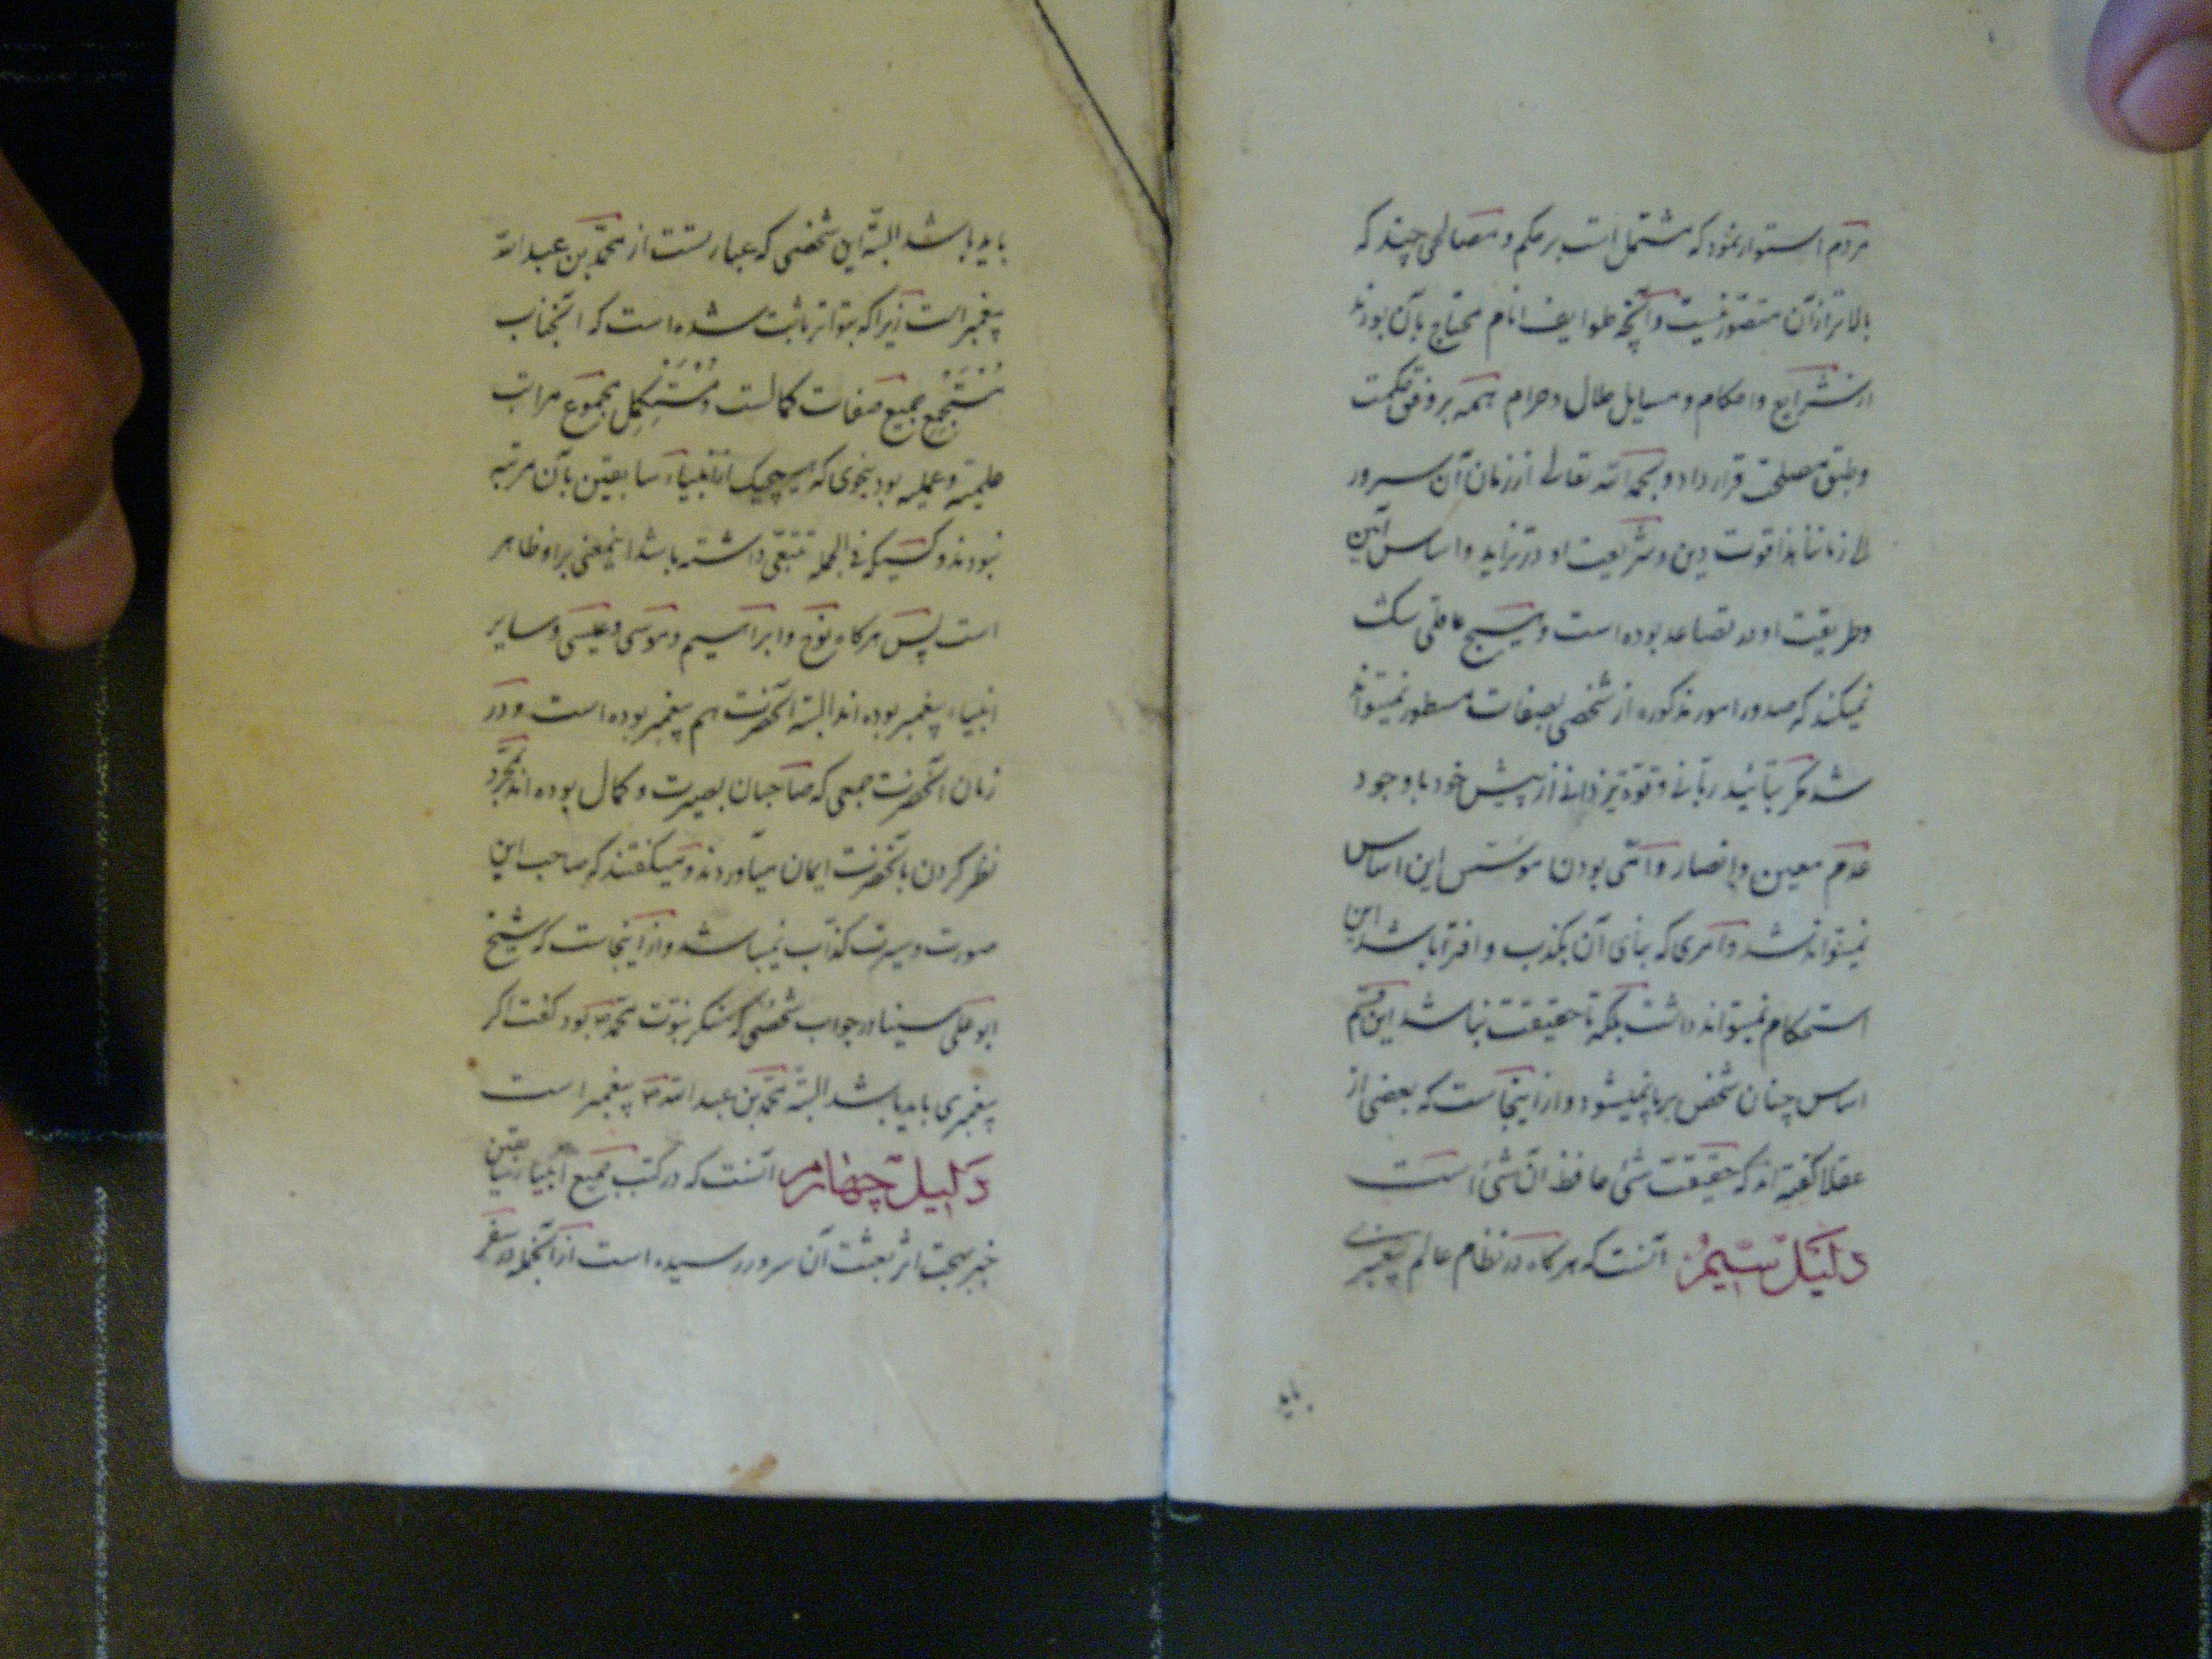 مردم استوار نمود که مشتمل است بر حکم و مصالحی چند که
بالاتر از آن متصوّر نیست و آنچه طوایف انام محتاج بآن بودند
از شرایع و احکام و مسایل حلال و حرام همه بر وفق حکمت
و طبق مصلحت قرار داد و بحمد الله تعالی از زمان آن سرور
الی زماننا هذا قوت دین و شریعت او در تزاید و اساس آیین
و طریقت او در تصاعد بوده است و هیچ عاقلی شک
نمیکند که صدور امور مذکوره از شخصی بصفات مسطور نمیتواند
شد مگر بتأئید ربّانی و قوّة یزدانی از پیش خود با وجود
عدم معین و انصار و امّی بودن مؤسّس این اساس
نمیتواند شد و امری که بنای آن بکذب و افترا باشد این
استحکام نمیتواند داشت بلکه تا حقیقت نباشد این قسم
اساس چنان شخص برپا نمیشود و از اینجاست که بعضی از
عقلا گفته اند که حقیقت شئ حافظ آن شئ است
دلیل سیّم آنست که هرگاه در نظام عالم پیغمبری
باید
باید باشد البتّه این شخصی که عبارتست از محمّد بن عبد الله
پیغمبر است زیرا که بتواتر ثابت شده است که آنجناب
مُسْتَجْمِع جمیع صفات کمالست و مُسْتَکْمِل مجموع مراتب
علمیّه و عملیه بود بنحوی که هیچیک از انبیاء سابقین بآن مرتبه
نبودند و کسیکه فی الجمله تتبّعی داشته باشد اینمعنی بر او ظاهر
است پس هرگاه نوح و ابراهیم و موسی و عیسی و سایر
انبیاء پیغمبر بوده اند البتّه آنحضرت هم پیغمبر بوده است و در
زمان آنحضرت جمعی که صاحبان بصیرت و کمال بوده اند بمجرّد
نظر کردن بآنحضرت ایمان میآوردند و میگفتند که صاحب این
صورت و سیرت کذّاب نمیباشد و از اینجاست که شیخ
ابو علی سینا در جواب شخصی که منکر نبوّت محمّد ص بود گفت اگر
پیغمبری باید باشد البتّه محمّد بن عبد الله ص پیغمبر است
دلیل چهارم آنست که در کتب جمیع انبیاء سابقین
خبر بهجت اثر بعثت آن سرور رسیده است از آنجمله در سفر